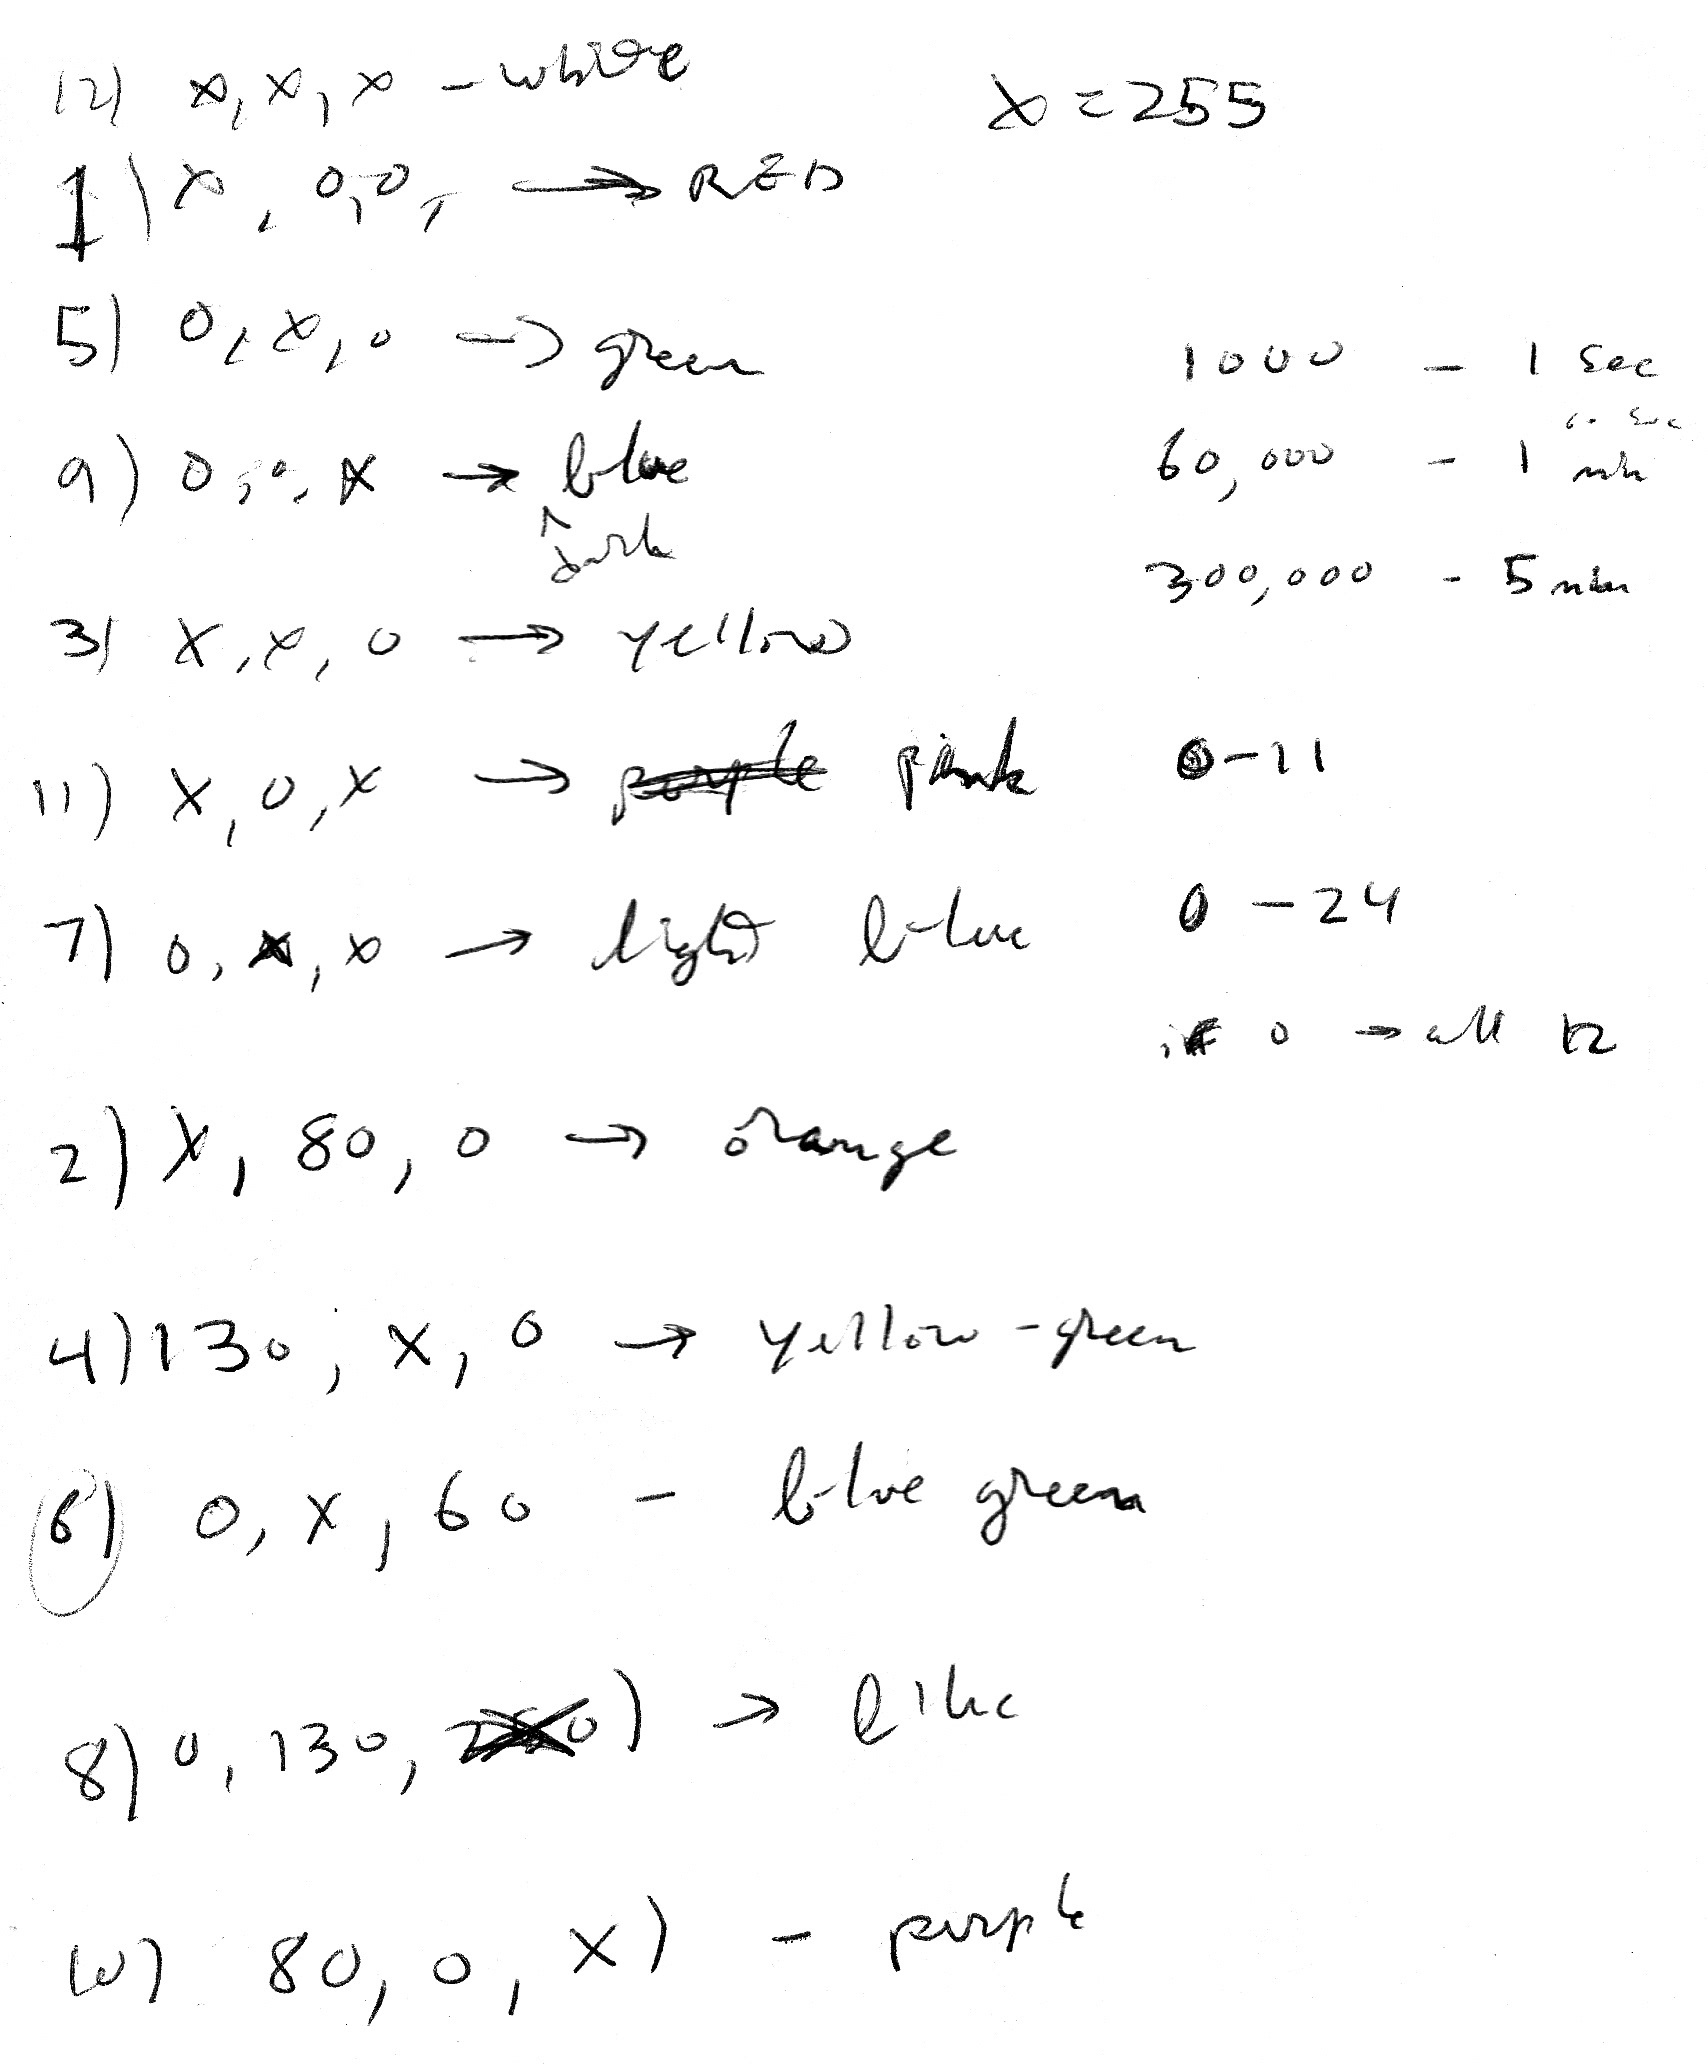 12) x, x, x - white
x = 255
1) x, 0, 0, → RED
5) 0, x, 0 → green
1000 - 1 sec
60 sec
9) 0, 0, x → blue
60,000 - 1 min
dark
300,000 - 5 min
3) x, x, 0 → yellow
11) x, 0, x → purple pink
0-11
7) 0, x, x → light blue
0-24
if 0 → all 12
2) x, 80, 0 → orange
4) 130, x, 0 → yellow-green
6) 0, x, 60 - blue green
8) 0, 130, ) →
10) 80, 0, x) - purple